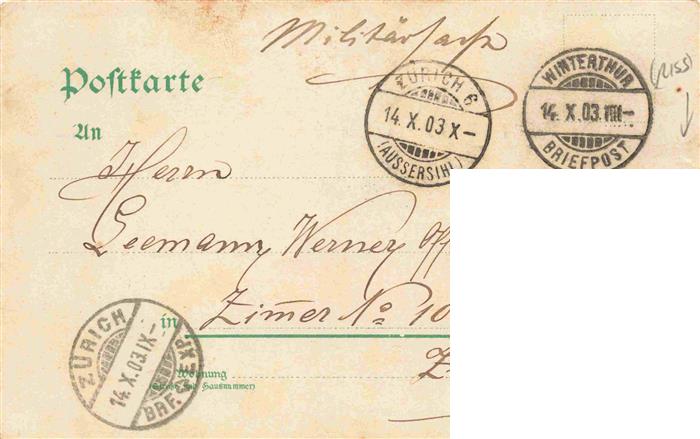 Militärsache
Postkarte
ZÜRICH 6
14. X. 03 X–
(AUSSERSIHL)
WINTERTHUR
14. X. 03. VIII–
BRIEFPOST
(RISS)
An
Herrn
Seemann, Werner Off
Zimer No 10
in
ZÜRICH
14. X. 03. XI–
BRF. EXP.
Wohnung
(Straße und Hausnummer)
Z